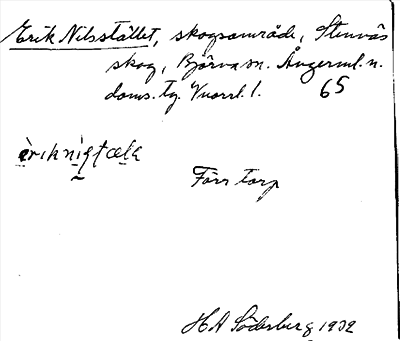 Erik Nilsstället, skogsområde, Stenvås
skog, Björna sn. Ångerml. n.
doms. tg. V:norrl. l. 65
èriknistælə
Förr torp
H A Söderberg 1932